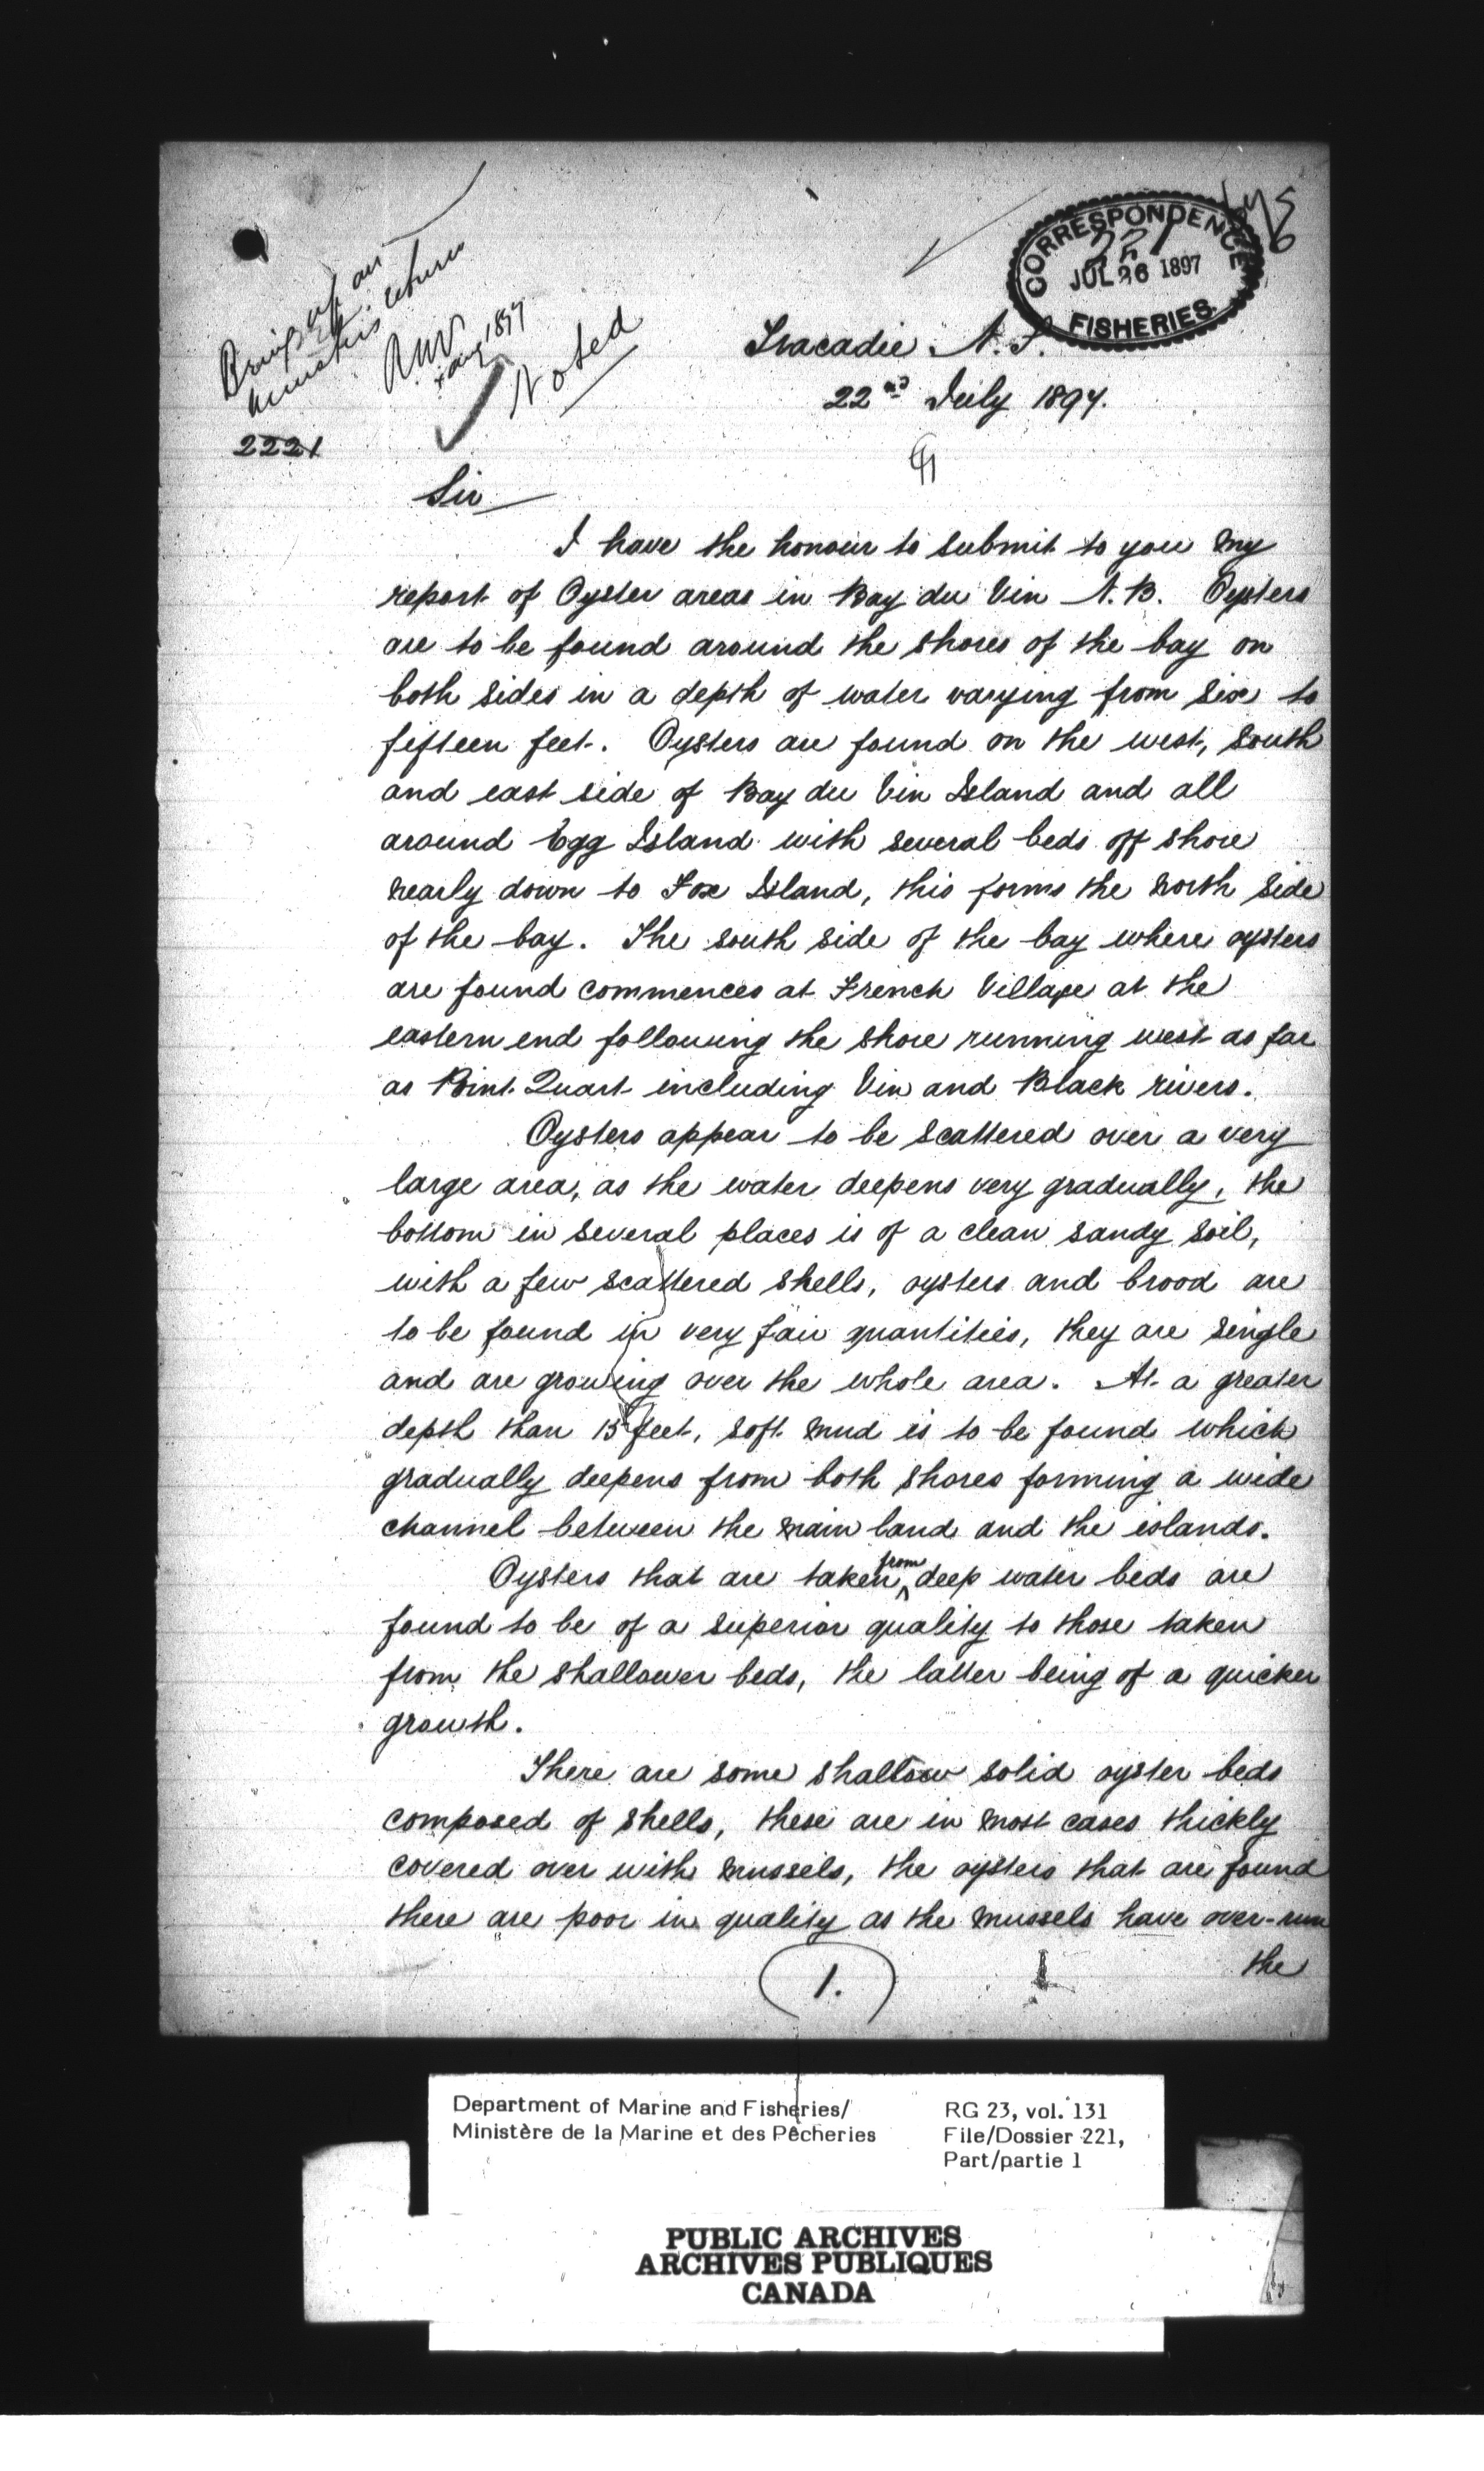 CORRESPONDENCE
221
JUL 26 1897
FISHERIES.
Bring up on
minister's return
Aug 1897
Noted
2221
Tracadie N.S.
22nd July 1897.
Sir
I have the honour to submit to you my
report of Oyster areas in Bay du Vin N.B. Oysters
are to be found around the shores of the bay on
both sides in a depth of water varying from six to
fifteen feet. Oysters are found on the west, south
and east side of Bay du Vin Island and all
around Egg Island with several beds off shore
nearly down to Fox Island, this forms the north side
of the bay. The south side of the bay where oysters
are found commences at French Village at the
eastern end following the shore running west as far
as Point Quart including Vin and Black rivers.
Oysters appear to be scattered over a very
large area, as the water deepens very gradually, the
bottom in several places is of a clean sandy soil,
with a few scattered shells, oysters and brood are
to be found in very fair quantities, they are single
and are growing over the whole area. At a greater
depth than 15 feet, soft mud is to be found which
gradually deepens from both shores forming a wide
channel between the main land and the islands.
Oysters that are taken from deep water beds are
found to be of a superior quality to those taken
from the shallower beds, the latter being of a quicker
growth.
There are some shallow solid oyster beds
composed of shells, these are in most cases thickly
covered over with mussels, the oysters that are found
there are poor in quality as the mussels have over-run
the
1.
Department of Marine and Fisheries/
Ministère de la Marine et des Pêcheries
RG 23, vol. 131
File/Dossier 221,
Part/partie 1
PUBLIC ARCHIVES
ARCHIVES PUBLIQUES
CANADA